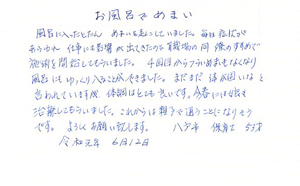 お風呂でめまい
風呂に入ったとたん めまいを起こしていました。毎日症状が
あらわれ 仕事にも影響が出てきたので 職場の同僚のすすめで
施術を開始してもらいました。 4回目からフラつきめまいもなくなり
風呂にもゆっくり入ることができました。まだまだ ほねが固いなと
言われていますが、体調はとても良いです。今春には娘も
治療してもらいました。これからは親子で通うことになりそう
です。 よろしくお願い致します。 八戸市 保育士 53才
令和元年 6月12日